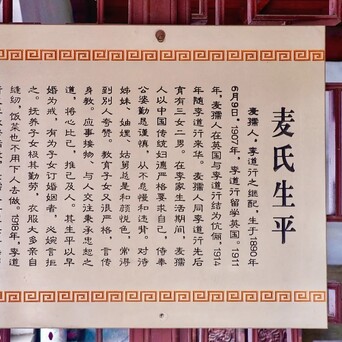 麦氏生平
麦孺人，李道行之继配，生于1890年
6月9日，1907年，李道行留学英国。1911
年，麦孺人在英国与李道行结为伉俪，1914
年随李道行来华。麦孺人同李道行先后
育有三女二男。在李家生活期间，麦孺
人以中国传统妇德严格要求自己，侍奉
公婆勤恳谨慎，从不怠慢和违背。对待
姊妹、妯娌、姑舅总是和颜悦色，常得
到别人夸赞。教育子女又很严格，言传
身教。应事接物、与人交往秉承忠恕之
道，将心比己，推己及人。其生平以早
婚为戒，有为子女订婚姻者，必婉言拒
之。抚养子女极其勤劳，衣服大多亲自
缝纫，饭菜也不用下人去做。1918年，李道